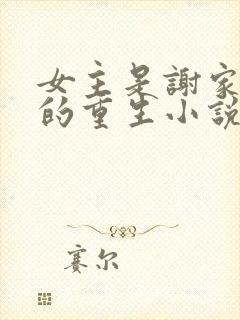 女主是謝家
的重生小說
賽尔